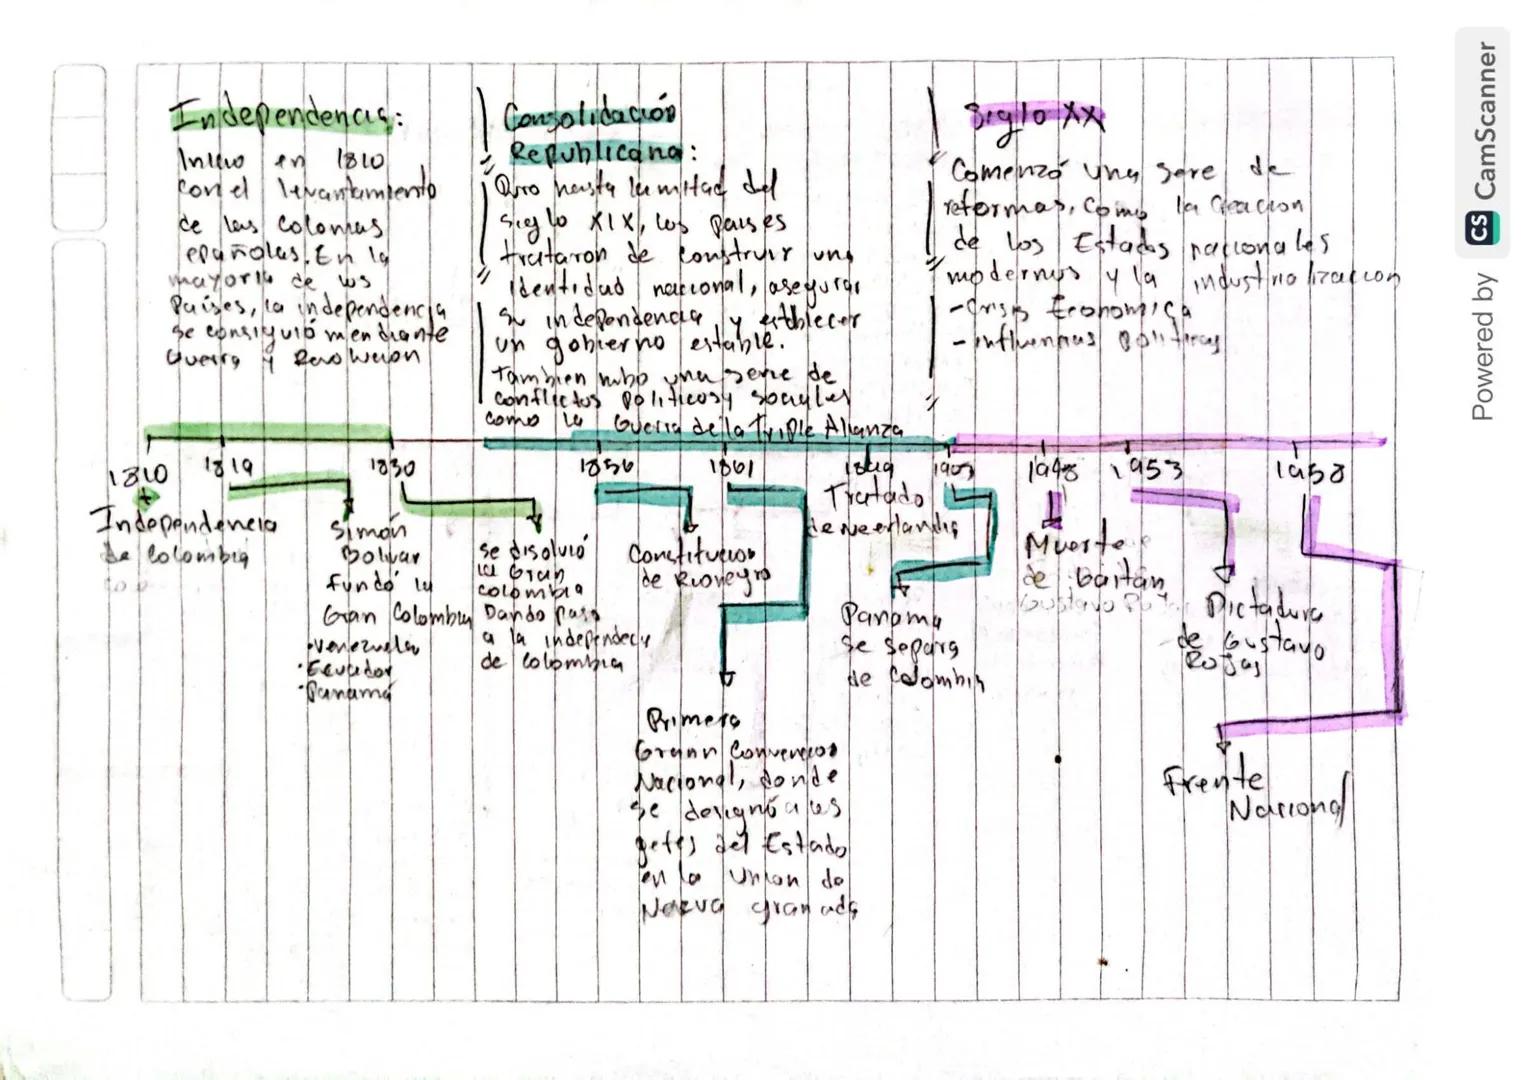 Independencia:
Inicio en 1810
con el levantamiento
de las Colonias
epañolas. En la
mayoria de los
Países, la independencia
se consiguió mendiante
Guerra y Revolucion
Consolidación
Republicana:
Duro hasta la mitad del
siglo XIX, los paises
trataron de construir una
identidad nacional, asegurar
su independencia y estblecer
un gobierno estable.
Tambien hubo una serie de
conflictos políticos y sociales
como la Guerra de la Triple Alianza
Siglo XX
Comenzó una sere de
reformas, como la Creacion
de los Estados nacionales
modernos y la industrializaccion
- Crisis Economica
- influencias politicas
1810
1819
1830
1856
1861
1849
1903
1948
1953
1958
Independencia
de Colombia
Simón
Bolivar
fundó la
Gran Colombia
• Venezuela
• Ecuador
• Panamá
se disolvió
la Gran
colombia
Dando paso
a la independecia
de Colombia
Constitucion
de Rionegro
Primera
Grann Convencion
Nacional, donde
se designó a los
gefes del Estado
en la Union de
Nueva granada
Tratado
de Neerlandia
Panama
se separa
de Colombia
Muerte
de Gaitán
Dictadura
de Gustavo
Rojas
Frente
Nacional
Powered by CS CamScanner